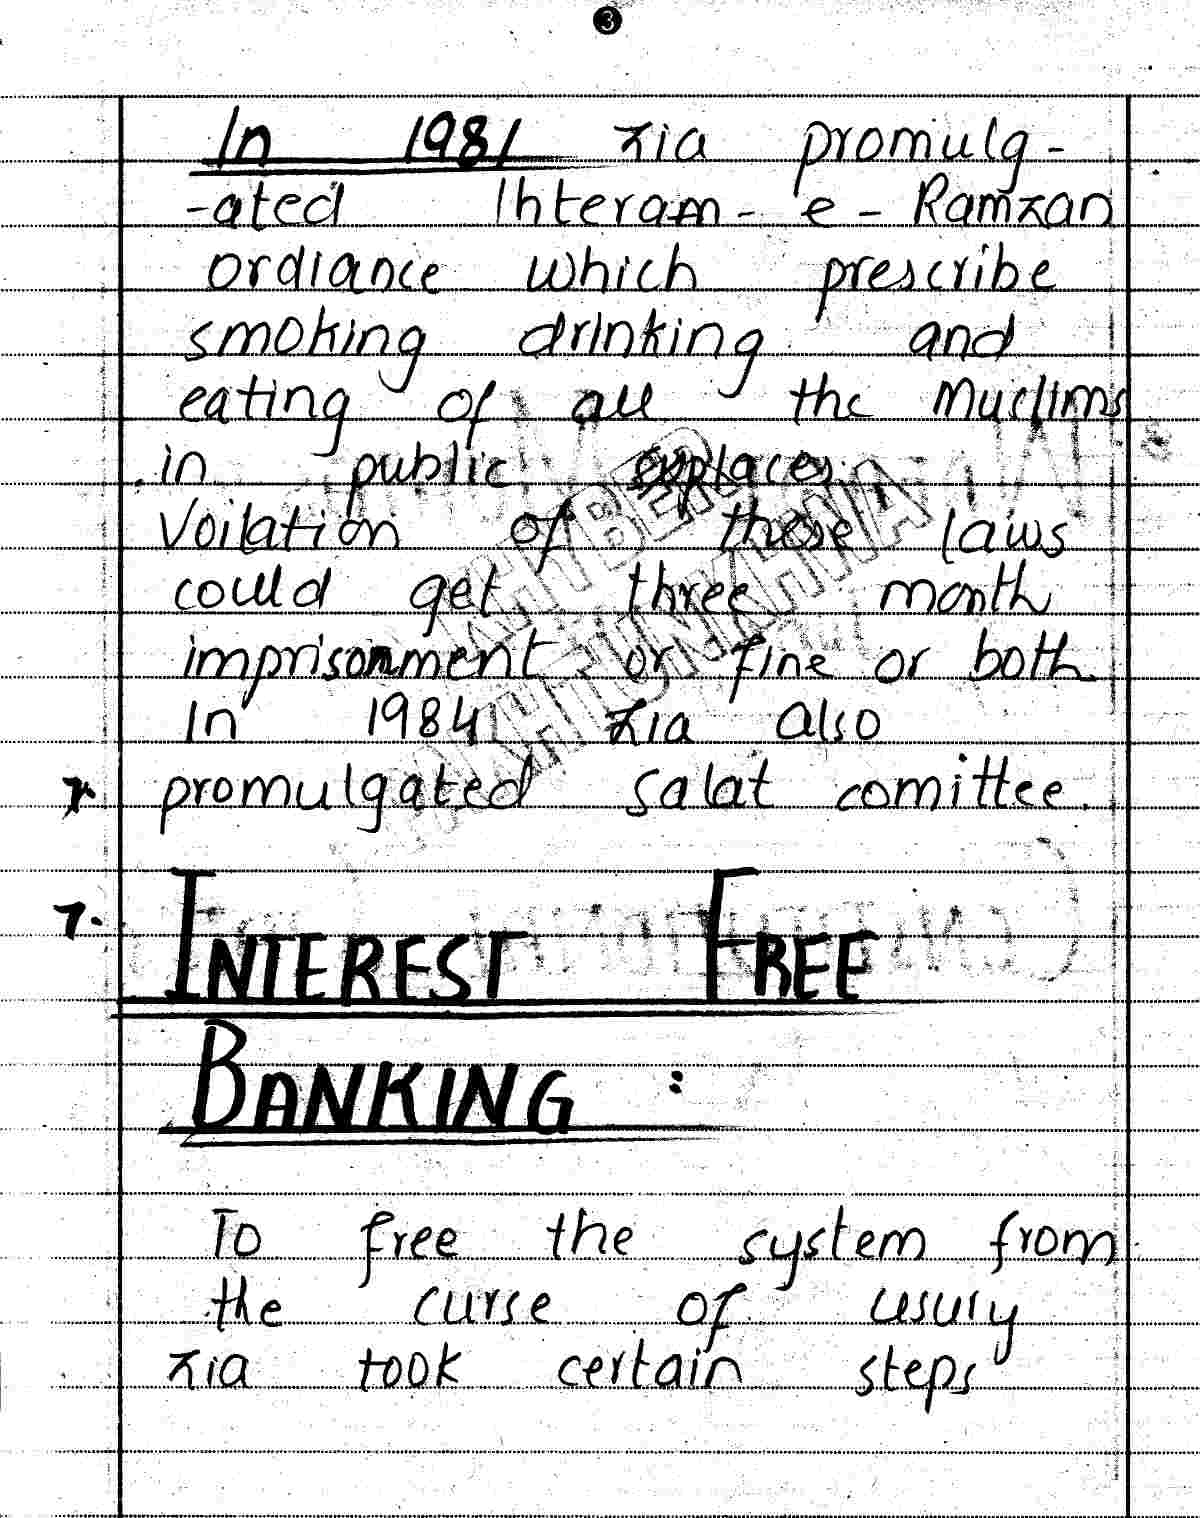 3
In 1981 Zia promulg-
-ated Ihteram-e-Ramzan
ordiance which prescribe
smoking drinking and
eating of all the Muslims
in public places.
Voilation of these laws
could get three month
imprisonment or fine or both
In 1984 Zia also
promulgated salat comittee.
7. INTEREST FREE
BANKING :
To free the system from
the curse of usury
Zia took certain steps
KHYBER
PAKHTUNKHWA